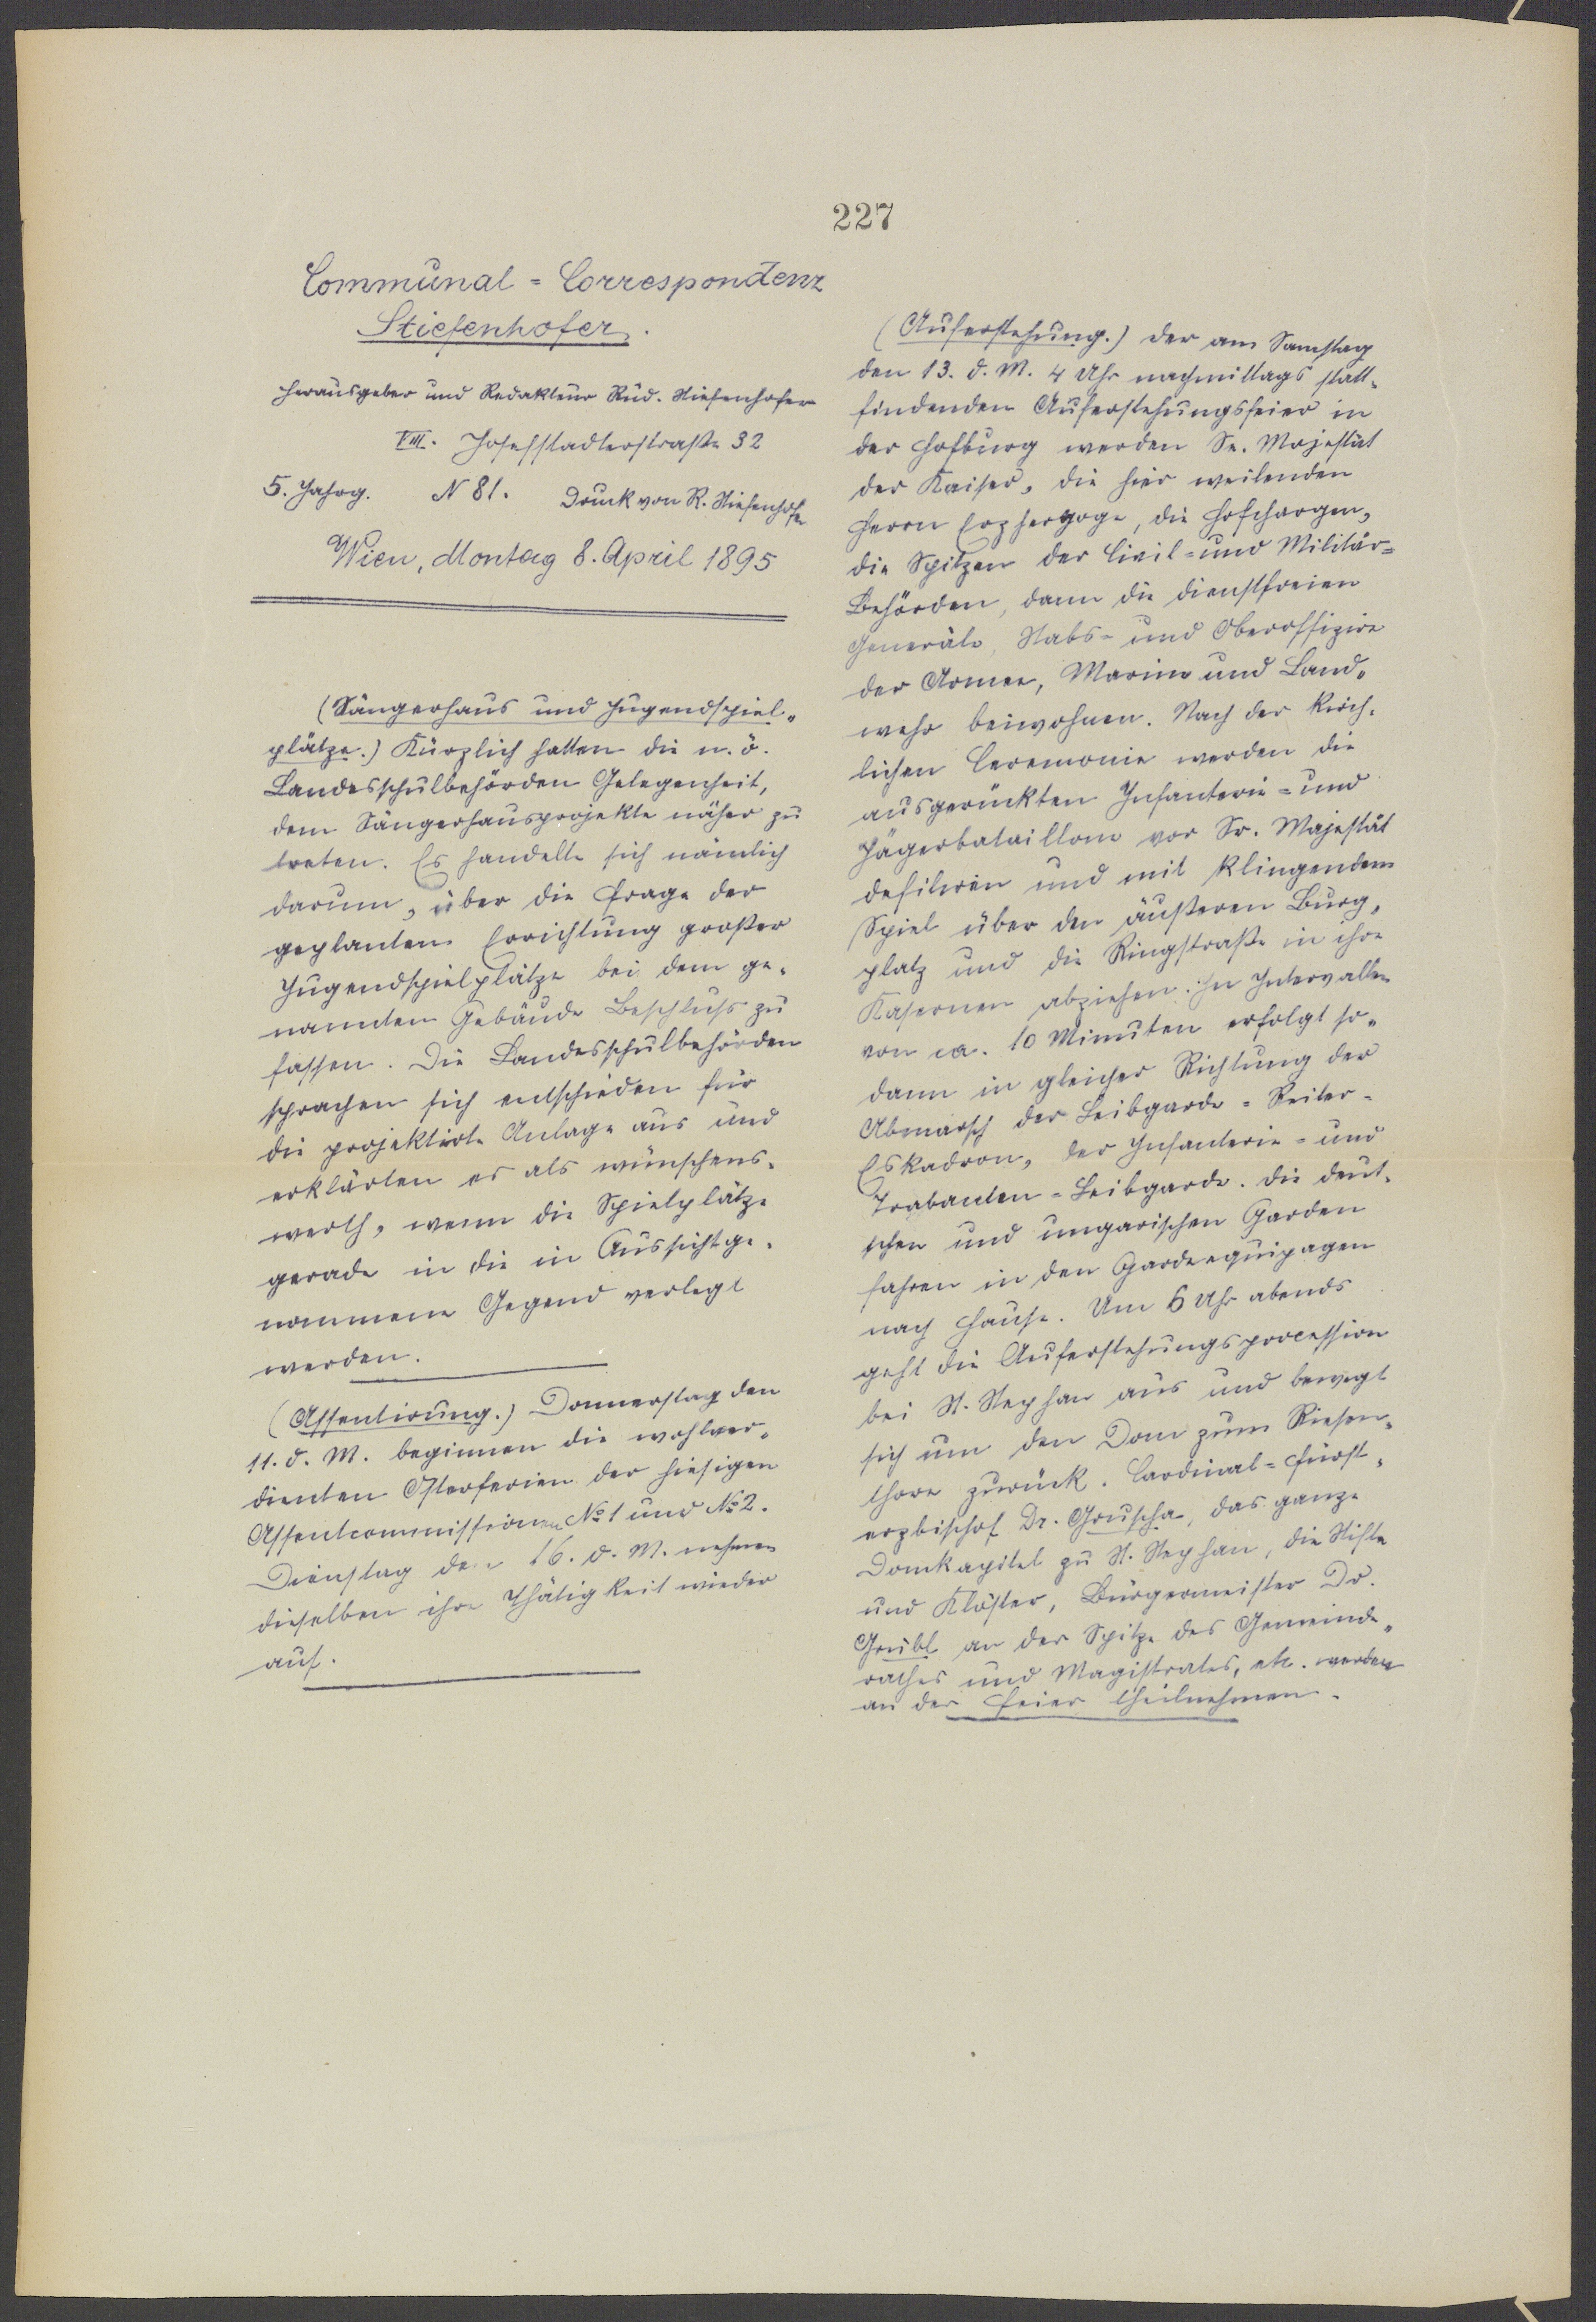 227
Communal=Correspondenz
Stiefenhofer.
Herausgeber und Redakteur Rud. Stiefenhofer
VIII. Josefstadterstraße 32
5. Jahrg. N 81. Druck von R. Stiefenhofer
Wien, Montag 8. April 1895
(Sängerhaus und Jugendspiel-
plätze.) Kürzlich hatten die n. ö.
Landesschulbehörden Gelegenheit,
dem Sängerhausprojekte näher zu
treten. Es handelte sich nämlich
darum, über die Frage der
geplanten Errichtung großer
Jugendspielplätze bei dem ge-
nannten Gebäude Beschluss zu
fassen. Die Landesschulbehörden
sprachen sich entschieden für
die projektirte Anlage aus und
erklärten es als wünschens-
werth, wenn die Spielplätze
gerade in die in Aussicht ge-
nommene Gegend verlegt
werden.
(Assentirung.) Donnerstag den
11. d. M. beginnen die wohlver-
dienten Osterferien der hiesigen
Assentcommissionen No 1 und No 2.
Dienstag den 16. d. M. nehmen
dieselben ihre Thätigkeit wieder
auf.
(Auferstehung.) Der am Samstag
den 13. d. M. 4 Uhr nachmittags statt-
findenden Auferstehungsfeier in
der Hofburg werden Se. Majestät
der Kaiser, die hier weilenden
Herrn Erzherzoge, die Hofchargen,
die Spitzen der Civil= und Militär=
Behörden, dann die dienstfreien
Generäle, Stabs= und Oberoffizire
der Armee, Marine und Land-
wehr beiwohnen. Nach der kirch-
lichen Ceremonie werden die
ausgerückten Infanterie= und
Jägerbataillone vor Sr. Majestät
defiliren und mit klingendem
Spiel über den äußeren Burg-
platz und die Ringstraße in ihre
Kasernen abziehen. In Intervallen
von ca. 10 Minuten erfolgt so-
dann in gleicher Richtung der
Abmarsch der Leibgarde=Reiter=
Eskadron, der Infanterie= und
Trabanten=Leibgarde. Die deut-
schen und ungarischen Garden
fahren in den Gardeequipagen
nach Hause. Um 6 Uhr abends
geht die Auferstehungsprocession
bei St. Stephan aus und bewegt
sich um den Dom zum Riesen-
thore zurück. Cardinal=Fürst-
erzbischof Dr. Gruscha, das ganze
Domkapitel zu St. Stephan, die Stifte
und Klöster, Bürgermeister Dr.
Grübl an der Spitze des Gemeinde-
rathes und Magistrates, etc. werden
an der Feier theilnehmen.